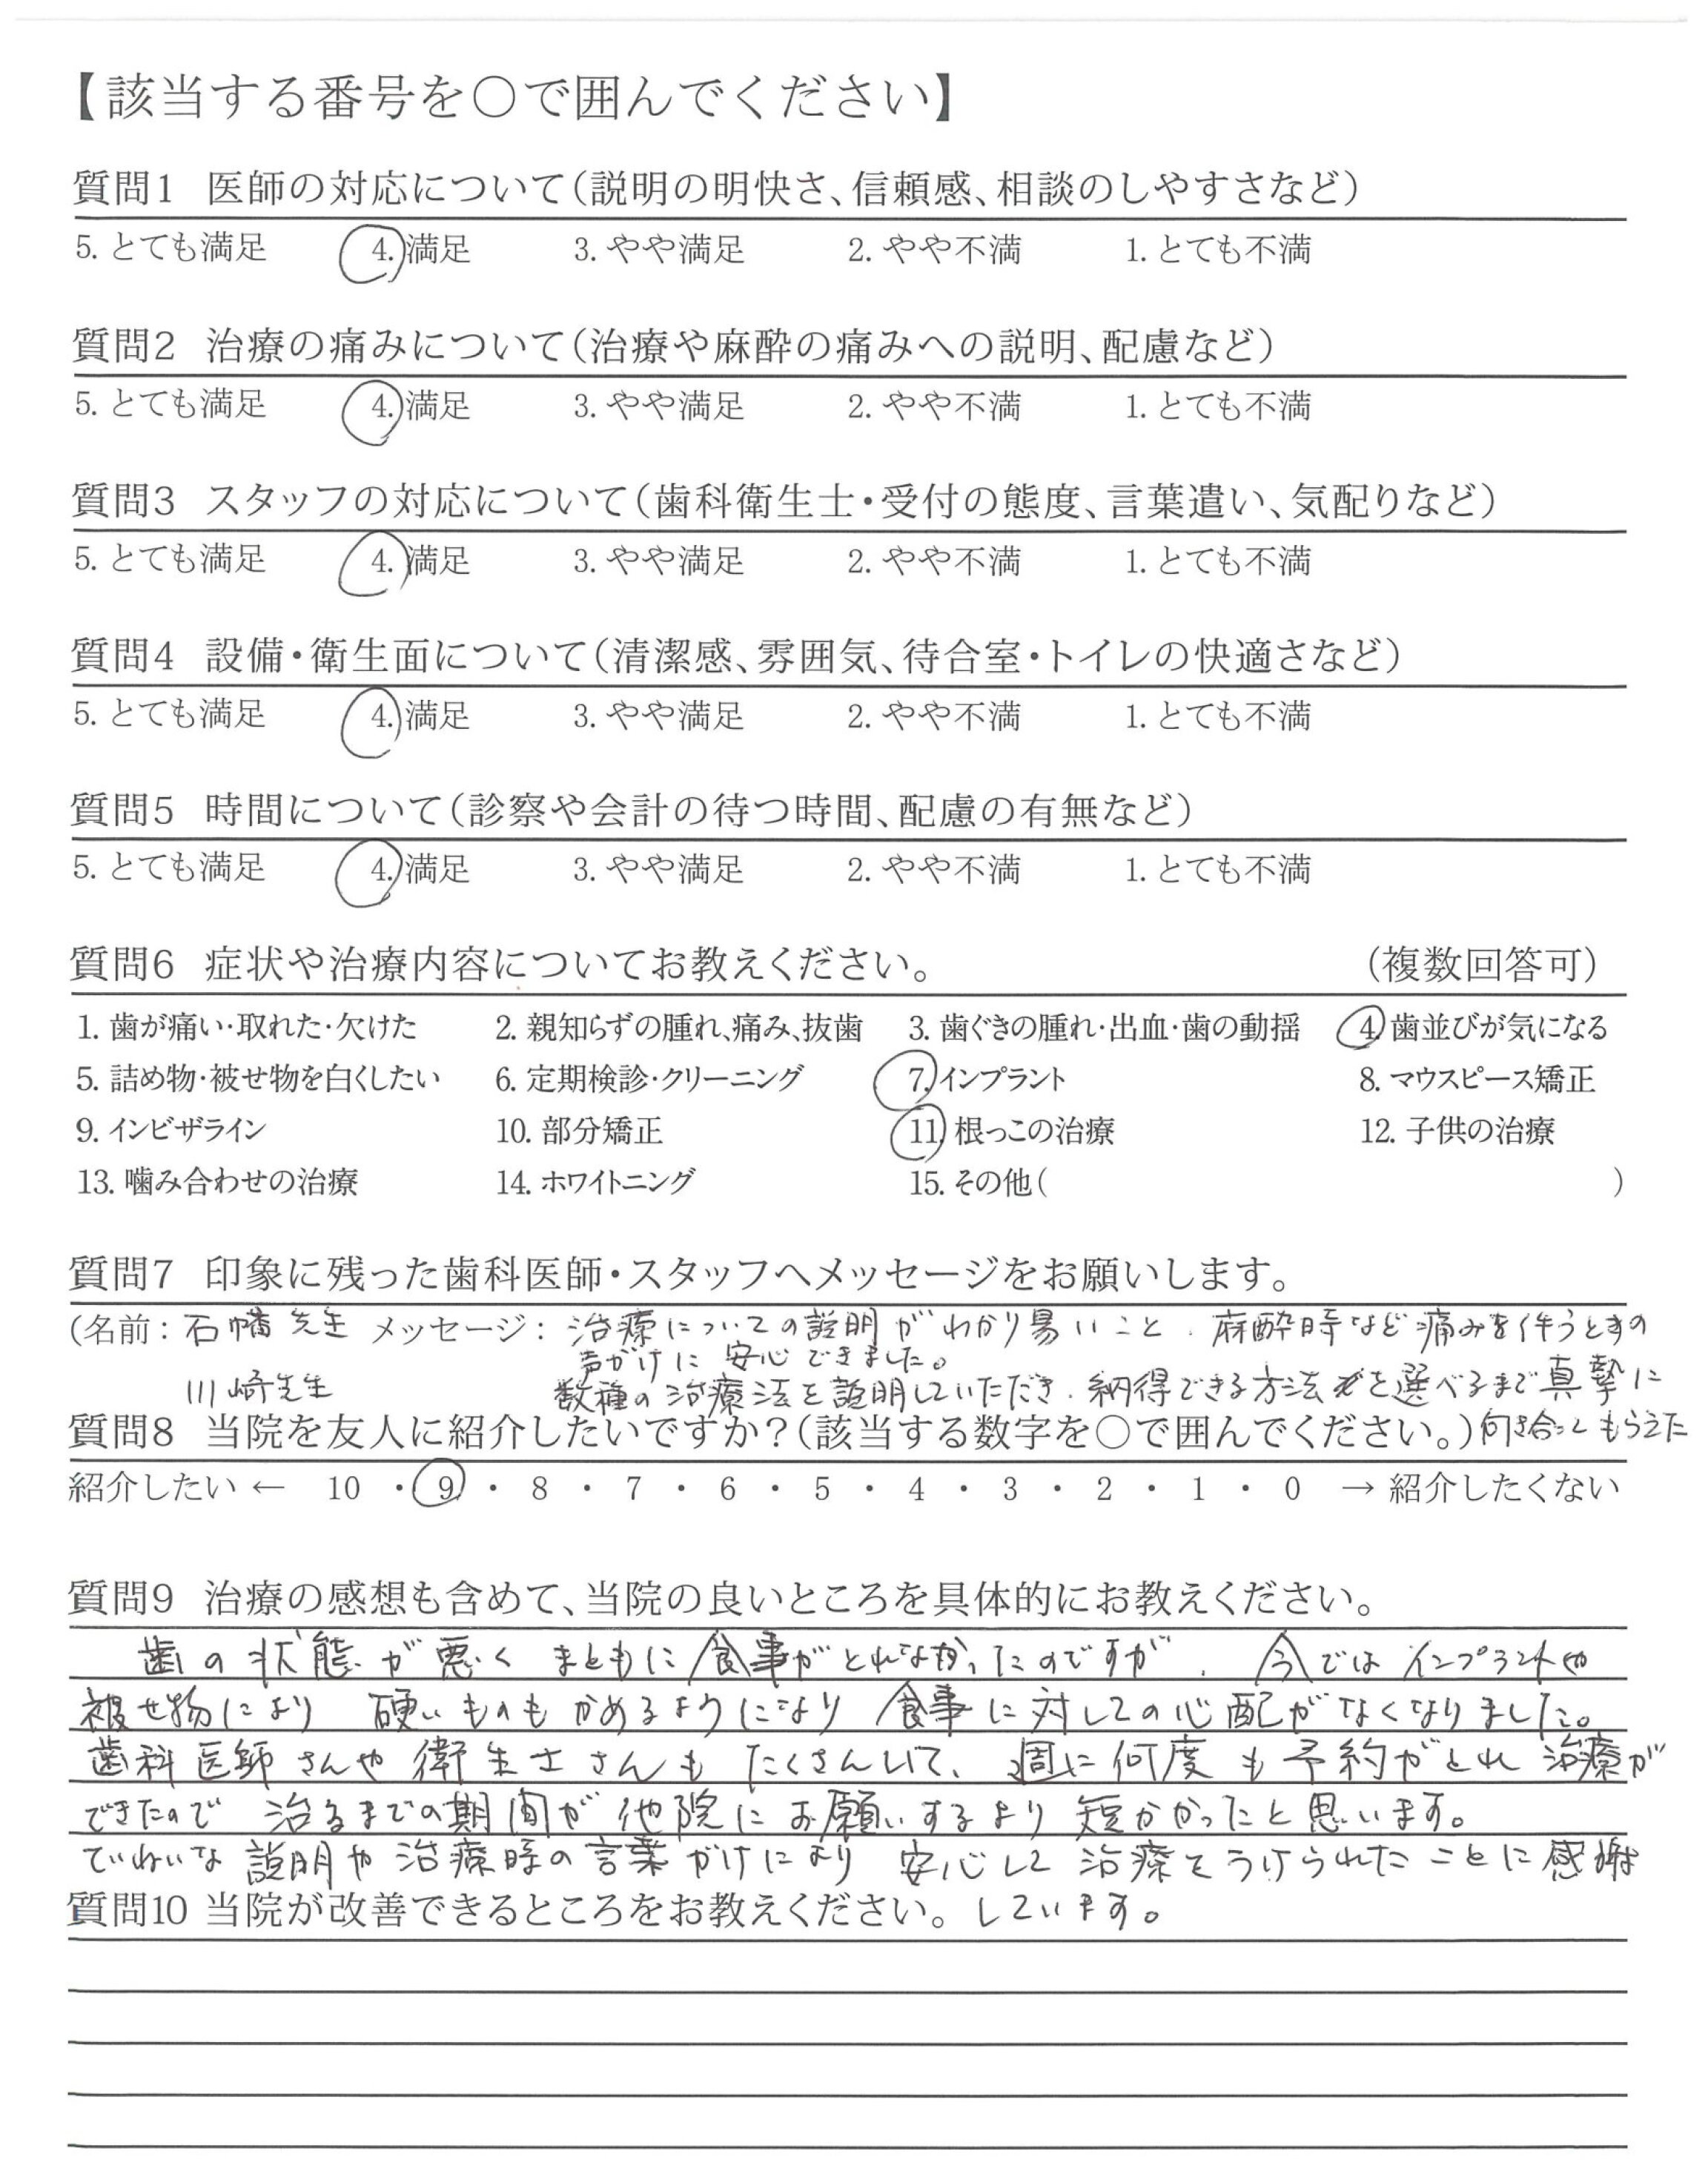 【該当する番号を〇で囲んでください】
質問1 医師の対応について(説明の明快さ、信頼感、相談のしやすさなど)
5. とても満足 4. 満足 3. やや満足 2. やや不満 1. とても不満
質問2 治療の痛みについて(治療や麻酔の痛みへの説明、配慮など)
5. とても満足 4. 満足 3. やや満足 2. やや不満 1. とても不満
質問3 スタッフの対応について(歯科衛生士・受付の態度、言葉遣い、気配りなど)
5. とても満足 4. 満足 3. やや満足 2. やや不満 1. とても不満
質問4 設備・衛生面について(清潔感、雰囲気、待合室・トイレの快適さなど)
5. とても満足 4. 満足 3. やや満足 2. やや不満 1. とても不満
質問5 時間について(診察や会計の待つ時間、配慮の有無など)
5. とても満足 4. 満足 3. やや満足 2. やや不満 1. とても不満
質問6 症状や治療内容についてお教えください。 (複数回答可)
1. 歯が痛い・取れた・欠けた 2. 親知らずの腫れ、痛み、抜歯 3. 歯ぐきの腫れ・出血・歯の動揺 4. 歯並びが気になる
5. 詰め物・被せ物を白くしたい 6. 定期検診・クリーニング 7. インプラント 8. マウスピース矯正
9. インビザライン 10. 部分矯正 11. 根っこの治療 12. 子供の治療
13. 噛み合わせの治療 14. ホワイトニング 15. その他( )
質問7 印象に残った歯科医師・スタッフへメッセージをお願いします。
(名前: 石幡先生 メッセージ: 治療についての説明がわかり易いこと、麻酔時など痛みを伴うときの
声がけに安心できました。
川崎先生 数種の治療法を説明していただき、納得できる方法を選べるまで真摯に
質問8 当院を友人に紹介したいですか?(該当する数字を〇で囲んでください。) 向き合ってもらえた
紹介したい ← 10 ・ 9 ・ 8 ・ 7 ・ 6 ・ 5 ・ 4 ・ 3 ・ 2 ・ 1 ・ 0 → 紹介したくない
質問9 治療の感想も含めて、当院の良いところを具体的にお教えください。
歯の状態が悪くまともに食事がとれなかったのですが、今ではインプラントや
被せ物により 硬いものもかめるようになり 食事に対しての心配がなくなりました。
歯科医師さんや衛生士さんもたくさんいて、週に何度も予約がとれ治療が
できたので 治るまでの期間が他院にお願いするより短かかったと思います。
ていねいな説明や治療時の言葉がけにより 安心して治療をうけられたことに感謝
質問10 当院が改善できるところをお教えください。 しています。